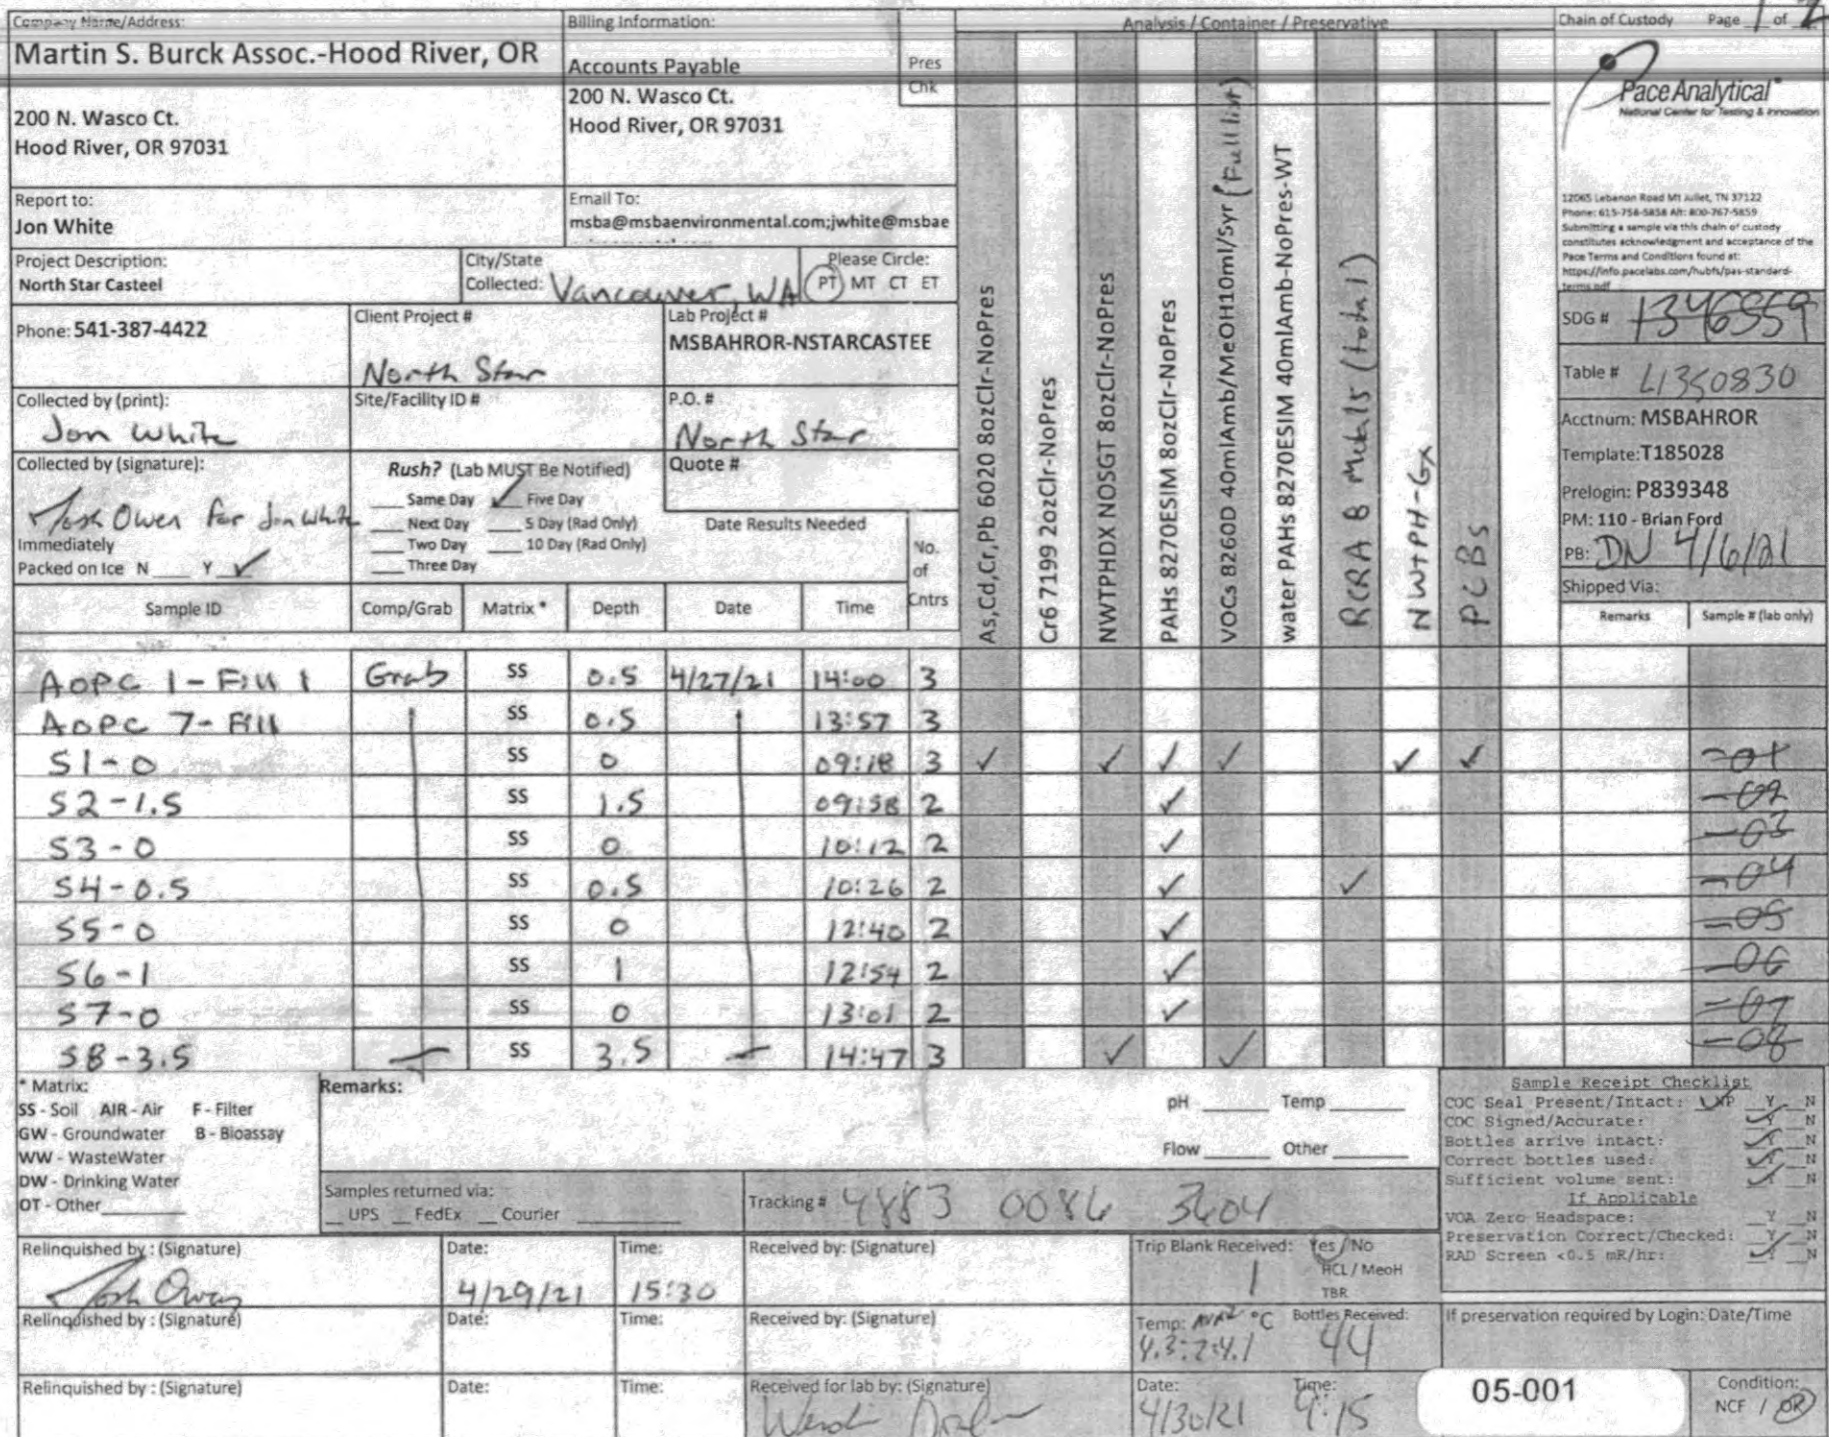 Company Name/Address:
Martin S. Burck Assoc.-Hood River, OR
200 N. Wasco Ct.
Hood River, OR 97031
Billing Information:
Accounts Payable
200 N. Wasco Ct.
Hood River, OR 97031
Pres
Chk
Analysis / Container / Preservative
Chain of Custody Page 1 of 2
Pace Analytical
National Center for Testing & Innovation
12065 Lebanon Road Mt Juliet, TN 37122
Phone: 615-758-5858 Alt: 800-767-5859
Submitting a sample via this chain of custody
constitutes acknowledgment and acceptance of the
Pace Terms and Conditions found at:
https://info.pacelabs.com/hubfs/pas-standard-
terms.pdf
Report to:
Jon White
Email To:
msba@msbaenvironmental.com;jwhite@msbae
Project Description:
North Star Casteel
City/State
Collected: Vancouver, WA
Please Circle:
PT MT CT ET
Phone: 541-387-4422
Client Project #
North Star
Lab Project #
MSBAHROR-NSTARCASTEE
Collected by (print):
Jon White
Site/Facility ID #
P.O. #
North Star
Collected by (signature):
Josh Owen for Jon White
Immediately
Packed on Ice N ___ Y ✓
Rush? (Lab MUST Be Notified)
___ Same Day ✓ Five Day
___ Next Day ___ 5 Day (Rad Only)
___ Two Day ___ 10 Day (Rad Only)
___ Three Day
Quote #
Date Results Needed
No.
of
Cntrs
As,Cd,Cr,Pb 6020 8ozClr-NoPres
Cr6 7199 2ozClr-NoPres
NWTPHDX NOSGT 8ozClr-NoPres
PAHs 8270ESIM 8ozClr-NoPres
VOCs 8260D 40mlAmb/MeOH10ml/Syr (Full list)
water PAHs 8270ESIM 40mlAmb-NoPres-WT
RCRA 8 Metals (total)
NWTPH-Gx
PCBs
SDG # 1346559
Table # L1350830
Acctnum: MSBAHROR
Template:T185028
Prelogin: P839348
PM: 110 - Brian Ford
PB: DN 4/6/21
Shipped Via:
Remarks Sample # (lab only)
Sample ID Comp/Grab Matrix * Depth Date Time
AOPC 1-Fill 1 Grab SS 0.5 4/27/21 14:00 3
AOPC 7-Fill SS 0.5 13:57 3
S1-0 SS 0 09:18 3 ✓ ✓ ✓ ✓ ✓ ✓ -01
S2-1.5 SS 1.5 09:58 2 ✓ -02
S3-0 SS 0 10:12 2 ✓ -03
S4-0.5 SS 0.5 10:26 2 ✓ ✓ -04
S5-0 SS 0 12:40 2 ✓ -05
S6-1 SS 1 12:54 2 ✓ -06
S7-0 SS 0 13:01 2 ✓ -07
S8-3.5 SS 3.5 14:47 3 ✓ ✓ -08
* Matrix:
SS - Soil AIR - Air F - Filter
GW - Groundwater B - Bioassay
WW - WasteWater
DW - Drinking Water
OT - Other
Remarks:
pH ___ Temp ___
Flow ___ Other ___
Samples returned via:
__ UPS __ FedEx __ Courier
Tracking # 4883 0086 3604
Sample Receipt Checklist
COC Seal Present/Intact: ✓NP _Y _N
COC Signed/Accurate: ✓Y _N
Bottles arrive intact: ✓Y _N
Correct bottles used: ✓Y _N
Sufficient volume sent: ✓Y _N
If Applicable
VOA Zero Headspace: _Y _N
Preservation Correct/Checked: _Y _N
RAD Screen <0.5 mR/hr: ✓Y _N
Relinquished by : (Signature)
Josh Owen
Date:
4/29/21
Time:
15:30
Received by: (Signature)
Trip Blank Received: Yes / No
1
HCL / MeoH
TBR
Relinquished by : (Signature)
Date:
Time:
Received by: (Signature)
Temp: °C Bottles Received:
44
If preservation required by Login: Date/Time
Relinquished by : (Signature)
Date:
Time:
Received for lab by: (Signature)
Date:
4/30/21
Time:
9:15
05-001
Condition:
NCF / OK